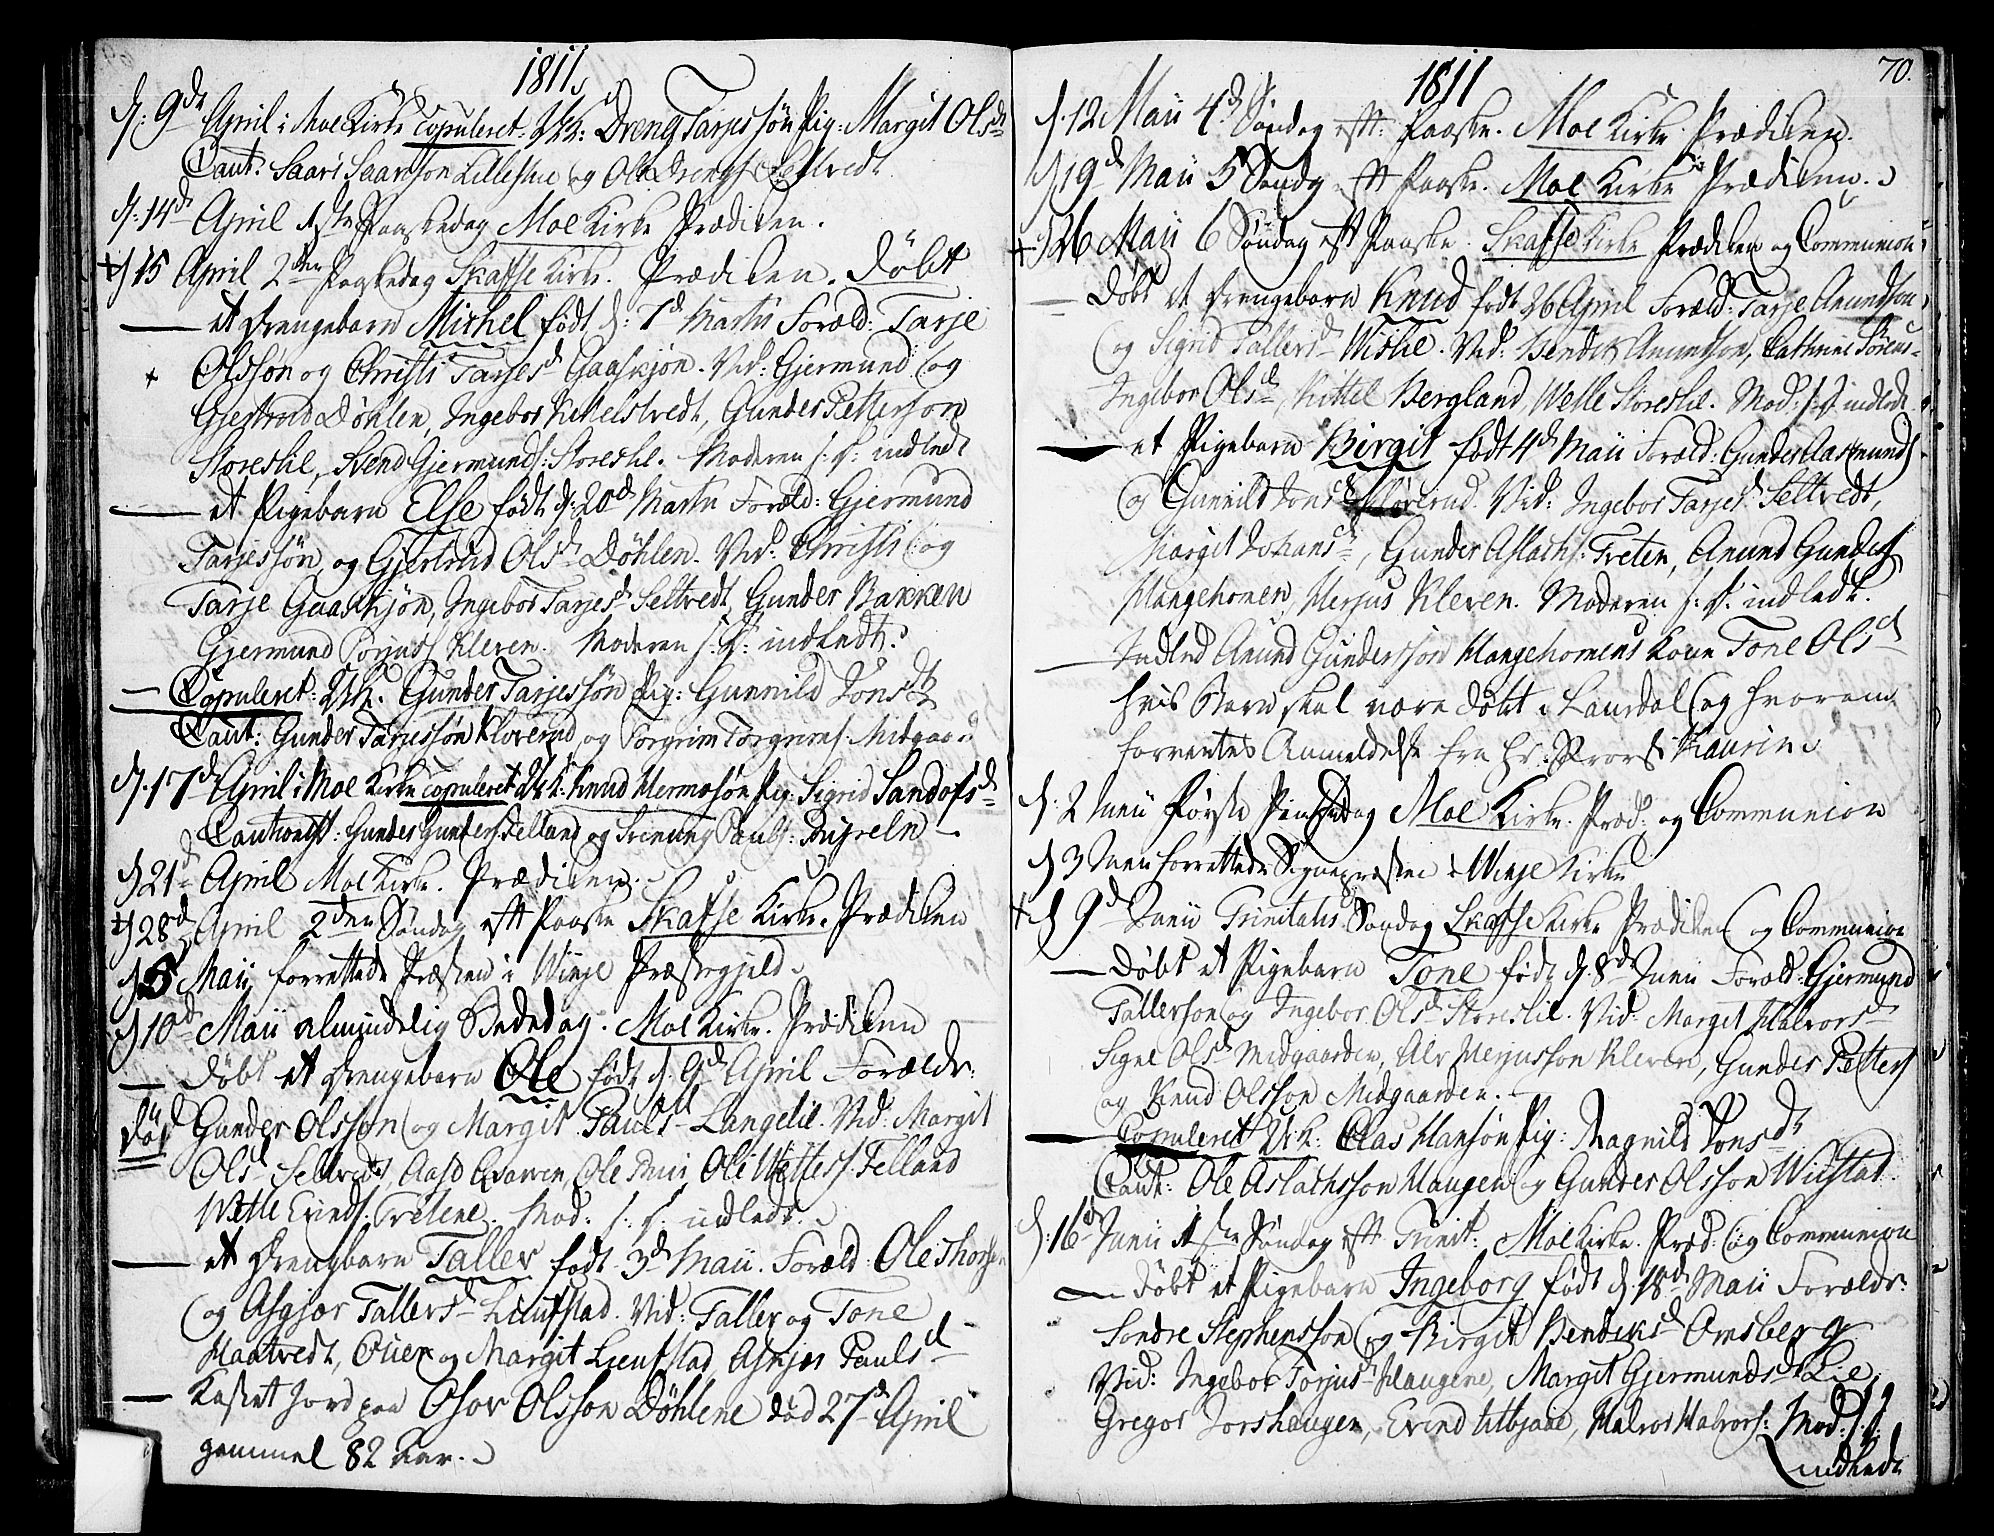 1811.
d: 9de April i Moe Kirke copuleret: UK: Dreng Tarjessøn Pig: Margit Olsd.
Caut: Saari Saarson Lillestue og Ole Drengs: Seltvedt
d: 14de April 1ste Paaskedag Moe Kirke Prædiken.
d 15 April 2den Paaskedag Skafse Kirke. Prædiken. Døbt
et Drengebarn Michel født d: 7d Martii Foræld: Tarje
Olssøn og Christi Tarjesd Gaaskjøn. Vid: Gjermund og
Gjertrud Døhlen, Ingebor Kittelstvedt, Gunder Petterson
Storeslil, Svend Gjermunds: Storesl. Moderen s: V: indledt
et Pigebarn Else født d: 20d Martii Foræld: Gjermund
Tarjessøn og Gjertrud Olsd. Døhlen. Vid: Christi og
Tarje Gaaskjøn, Ingebor Tarjesd Seltvedt, Gunder Bakken
Gjermund Torjuss Kleven. Moderen s: V: indledt.
Copuleret: UK. Gunder Tarjessøn Pig: Gunnild Jonsdt
Caut: Gunder Tarjessøn Kloverud og Torgrim Torgrims: Midgaard
d. 17d April i Moe Kirke copuleret UK: Knud Hermosøn Pig: Sigrid Sandofsd
Cautionst: Gunder Gunders Felland og Trinung Pauls:
d 21d April Moe Kirke. Prædiken.
d 28d April 2den Søndag eft Paaske Skafse Kirke. Prædiken
d 5 Maii forrettede Præsten i Winje Præstegjeld
d 10d Maii almindelig Bededag. Moe Kirke. Prædiken
Døbt et Drengebarn Ole født d. 9d April Forældr:
død Gunder Olsson og Margit Paulsd Langelie. Vid: Margit
Olsd Seltvedt, Aase Ole Ole Wetters: Felland
Wetle Evinds: Tretene. Mod: s: V: indledt.
et Drengebarn Taller født 3d Maii. Foræld: Ole Thors
og Asgjær Tallersd Lieufstad. Vid: Taller og Tone
Haatvedt, Ouer og Margit Lieufstad, Asgjær Paulsd
Kastet Jord paa Osov Olsson Døhlene død 27d April
gammel 82 Aar.
1811 70.
d. 12 Maii 4d Søndag eft: Paaske. Moe Kirke. Prædiken.
d 19d Maii 5 Søndg eft Paaske. Moe Kirke Prædiken.
d 26 Maii 6 Søndag eft Paaske. Skafse Kirke Prædiken og Communion
Døbt et Drengebarn Knud født 26 April Foræld: Tarje Amundson
og Sigrid Tallersd Wislie. Vid: Bendik Amundson, Cathrine Sørens
Ingebor Olsd, Kittel Bergland, Wetle Storeslil. Mod: s: V indledt
et Pigebarn Birgit født 4d Maii Foræld: Gunder Aasmunds
og Gunnild Jonsd Kloverud. Vid: Ingebor Tarjesd Seltvedt,
Margit Johansd, Gunder Aslachs: Treten, Anund Gunders
Mangehomen, Herjus Kleven. Moderen s: V: indledt.
Indled Anund Gundersson Mangehomens Kone Tone Olsd
hvis Barn skal være døbt i Laurdal og hvorom
forventes Anmeldelse fra Hr: Provst Kaurin
d: 2 Junii første Pinsedag Moe Kirke. Præd: og Communion
d 3 Junii forrettede Sognepræsten i Winje Kirke
d 9d Junii Trinitatis Søndag Skafse Kirke Prædiken og Communion
Døbt et Pigebarn Tone født d. 8d Junii Foræld: Gjermund
Tallerson og Ingebor Olsd Storeslil. Vid: Marget Halvorsd
Signe Olsd Midgaarden, Alv Herjusson Kleven, Gunder Petters
og Knud Olsson Midgaarden.
Copuleret UK: Clas Hansøn Pig: Ragnild Jonsdt
Caut: Ole Aslachsson Haugen og Gunder Olsson Wiistad
d: 16d Junii 1ste Søndag eft Trinit: Moe Kirke. Præd: og Communion
Døbt et Pigebarn Ingeborg født d. 18d Maii Forældr:
Sondre Stephensson og Birgit Bendiksd Omsberg
Vid: Ingebor Torjusd Haugene, Margit Gjermundsdt Lie,
Gregor Jorshaugen, Evind Utbjaae, Halvor Halvors: Mod: s: V:
indledt